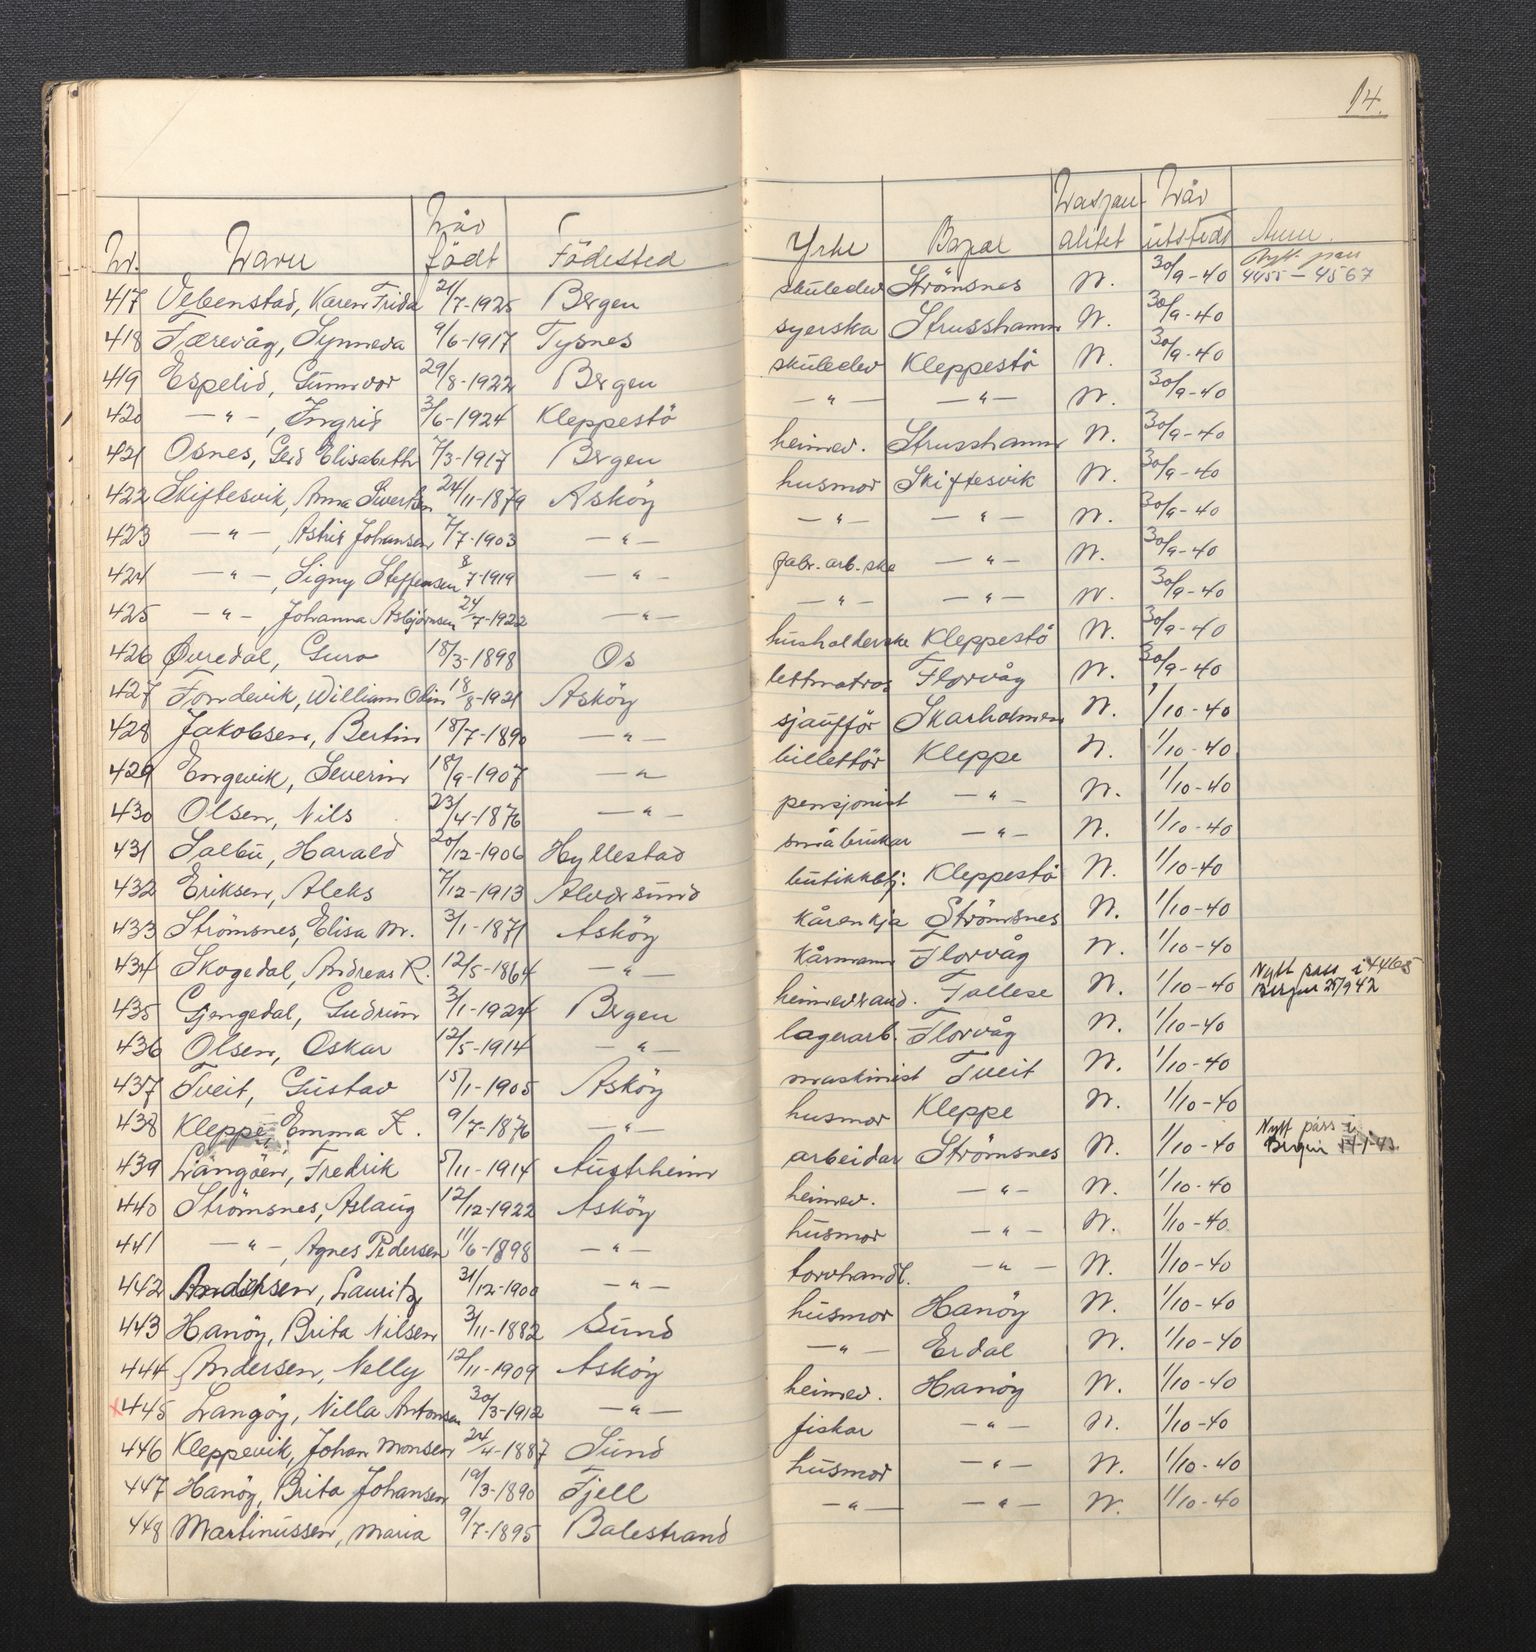 14.
Nr. Navn Når födt Födested Yrke Bopæl Nasjonalitet Når utstedt Anm.
417 Vebenstad, Karen Frida 21/7-1925 Bergen skuleelev Strömsnes N. 30/9-40 Nytt pass 4455-4567
418 Færevåg, Synneva 9/6-1917 Tysnes syerska Strusshamn N. 30/9-40
419 Espelid, Gunnvor 29/8-1922 Bergen skuleelev Kleppestö N. 30/9-40
420 — " —, Ingrid 3/6-1924 Kleppestö — " — — " — N. 30/9-40
421 Osnes, Gerd Elisabeth 7/3-1917 Bergen heimev. Strusshamn N. 30/9-40
422 Skiftesvik, Anna Sivertsen 24/11-1879 Asköy husmor Skiftesvik N. 30/9-40
423 — " —, Astrid Johansen 7/7-1903 — " — — " — — " — N. 30/9-40
424 — " —, Signy Steffensen 8/7-1919 — " — fabr.arb.ske — " — N. 30/9-40
425 — " —, Johanna Asbjörnsen 24/7-1922 — " — — " — — " — N. 30/9-40
426 Øvredal, Guro 18/3-1898 Os husholderske Kleppestö N. 30/9-40
427 Tondevik, William Odin 18/8-1921 Asköy lettmatros Florvåg N. 30/9-40
428 Jakobsen, Bertin 18/7-1890 — " — sjåufför Skarholmen N. 1/10-40
429 Engevik, Severin 18/9-1907 — " — billettör Kleppe N. 1/10-40
430 Olsen, Nils 23/4-1876 — " — pensjonist — " — N. 1/10-40
431 Salbu, Harald 20/12-1906 Hyllestad småbrukar — " — N. 1/10-40
432 Eriksen, Aleks 7/12-1913 Alversund butikkbtj. Kleppestö N. 1/10-40
433 Strömsnes, Elisa M. 3/1-1871 Asköy kårenkja Strömsnes N. 1/10-40
434 Skogedal, Andreas R. 12/5-1864 — " — kårmann Florvåg N. 1/10-40
435 Gjengedal, Gudrun 3/1-1924 Bergen heimeverand. Follese N. 1/10-40 Nytt pass i 4465 Bergen 25/9 42
436 Olsen, Oskar 12/5-1914 — " — lagerarb. Florvåg N. 1/10-40
437 Tveit, Gustav 15/1-1905 Asköy maskinist Tveit N. 1/10-40
438 Kleppe, Emma K. 9/7-1876 — " — husmor Kleppe N. 1/10-40
439 Langöen, Fredrik 5/11-1914 Austrheim arbeidar Strömsnes N. 1/10-40 Nytt pass i Bergen
440 Strömsnes, Aslaug 12/12-1922 Asköy heimev. — " — N. 1/10-40
441 — " —, Agnes Pedersen 11/6-1898 — " — husmor — " — N. 1/10-40
442 Andersen, Lauritz 31/12-1900 — " — torvhandl. — " — N. 1/10-40
443 Hanöy, Brita Nilsen 3/11-1882 Sund husmor Hanöy N. 1/10-40
444 Andersen, Nelly 12/11-1909 Asköy — " — Erdal N. 1/10-40
x 445 Langöy, Nilla Antonsen 30/3-1912 — " — heimev. Hanöy N. 1/10-40
446 Kleppevik, Johan Monsen 24/4-1887 Sund fiskar — " — N. 1/10-40
447 Hanöy, Brita Johansen 19/3-1890 Fjell husmor — " — N. 1/10-40
448 Martinussen, Maria 9/7-1895 Balestrand — " — — " — N. 1/10-40